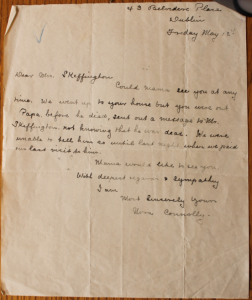 43 Belvedere Place
Dublin
Friday May 12
Dear Mrs. Skeffington
Could Mama see you at any
time. We went up to your house but you were out
Papa, before he died, sent out a message to Mr.
Skeffington not knowing that he was dead. We were
unable to tell him so until last night when we paid
our last visit to him.
Mama would like to see you.
With deepest regards & sympathy
I am
Most Sincerely Yours
Nora Connolly.